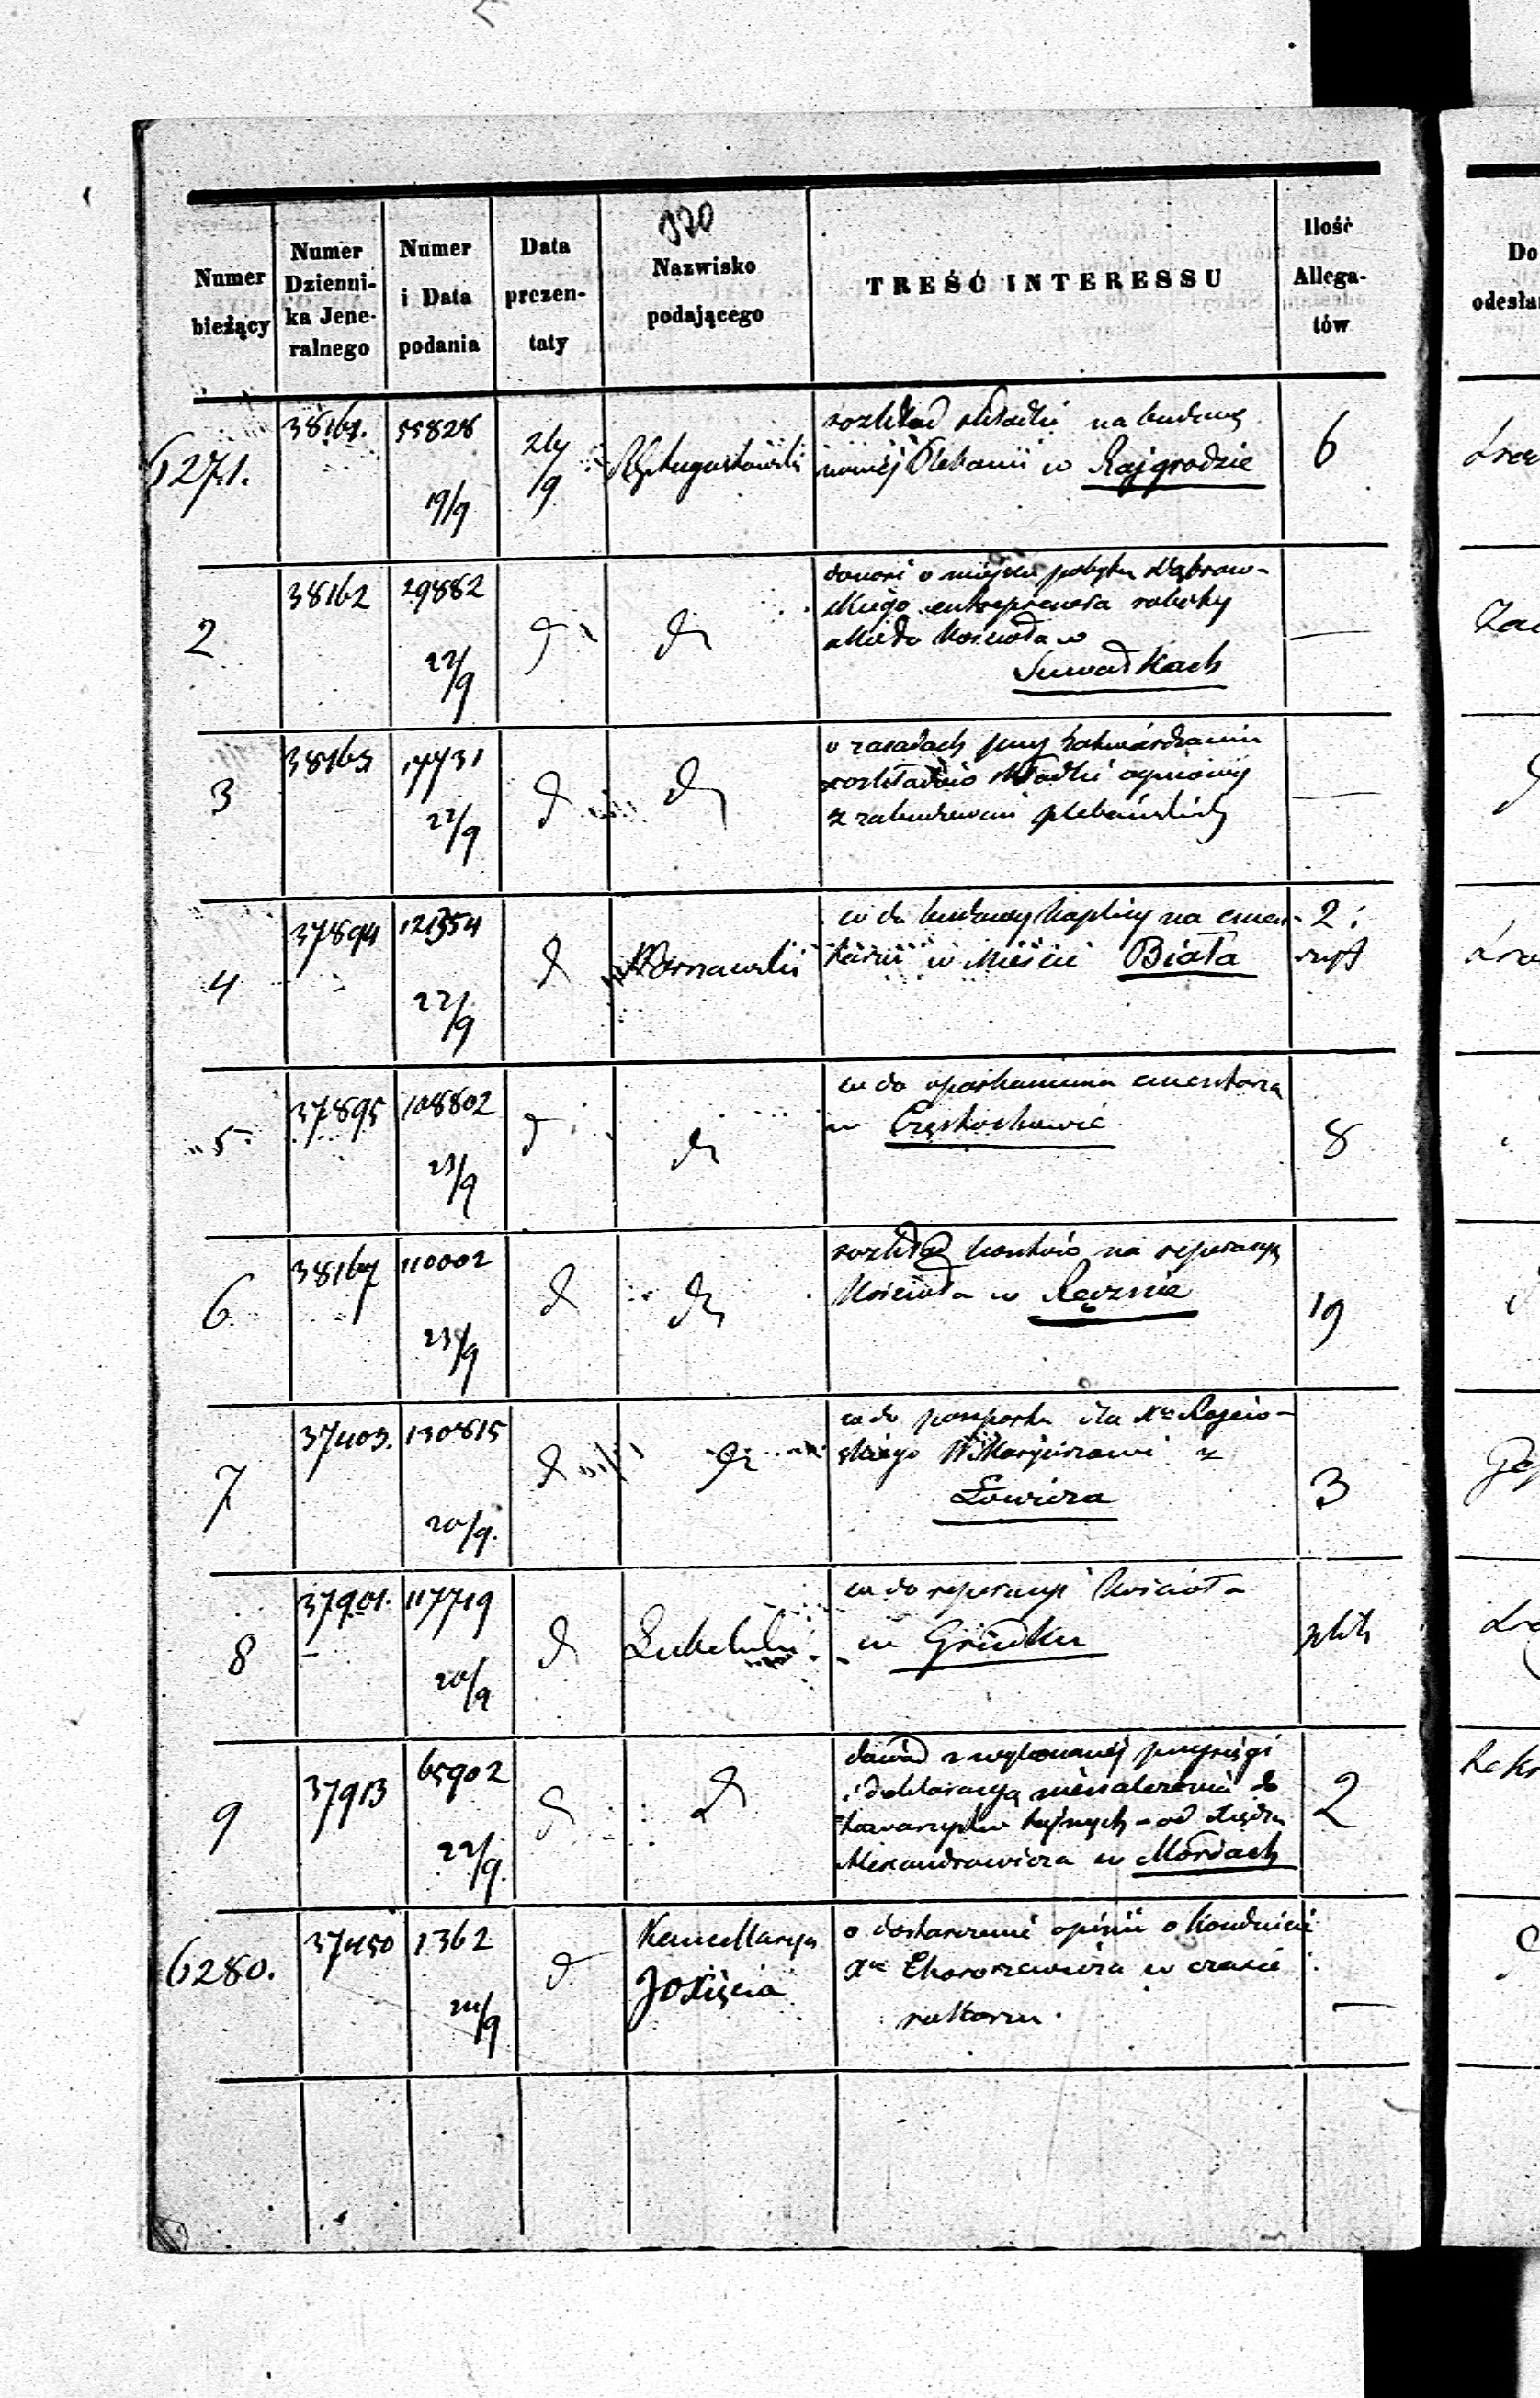 920
Numer bieżący
Numer Dzienni-
ka Jene-
ralnego
Numer i Data podania
Data prezen-
taty
Nazwisko podającego
TREŚĆ INTERESSU
Ilość Allega-
tów
Do
odesła
6271.
38161.
55828
19/9
24/9
Rz Augustowski
rozkład składki na budowę
nowéj Plebanii w Rajgrodzie
6
2
38162
29882
22/9
d
dr
donosi o miejscu pobytu Dąbrow-
skiego entreprenera roboty
Kościoła w
Suwałkach
—
3
38163
17731
22/9
d
d
o zasadach przy zatwierdzaniu
rozkładów składki ogniowej
z zabudowań plebańskich
—
4
37894
121354
22/9
d
Warszawski
co do budowy kaplicy na cmen-
tarzu w Mieście Biała
2.
szyt
5
37895
108802
23/9
d
dr
co do oparkanienia cmentarza
w Częstochowie
8
6
38167
110002
23/9
d
dr
rozkład kosztów na reperacyę
Kościoła w Ręcznie
19
7
37403.
130815
20/9.
d
dr
co do paszportu dla Xa
skiego Wikaryusza z
Łowicza
3
8
37901.
117719
20/9
d
Lubelski
co do reperacyi Kościoła
w Gródku
plik
9
37913
65902
22/9.
d
d
dowód z wykonanéj przysięgi
i deklaracyą nienależenia do
towarzystw tajnych – od Księdza
Alexandrowicza w Mordach
2
6280.
37450
1362
/9
d
Kancellarya
JOXięcia
o dostarczenie opinii o konduicie
Xa w czasie
—